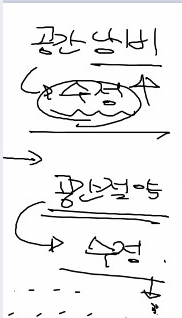 공간낭비
수정↑
공간절약
수정↓